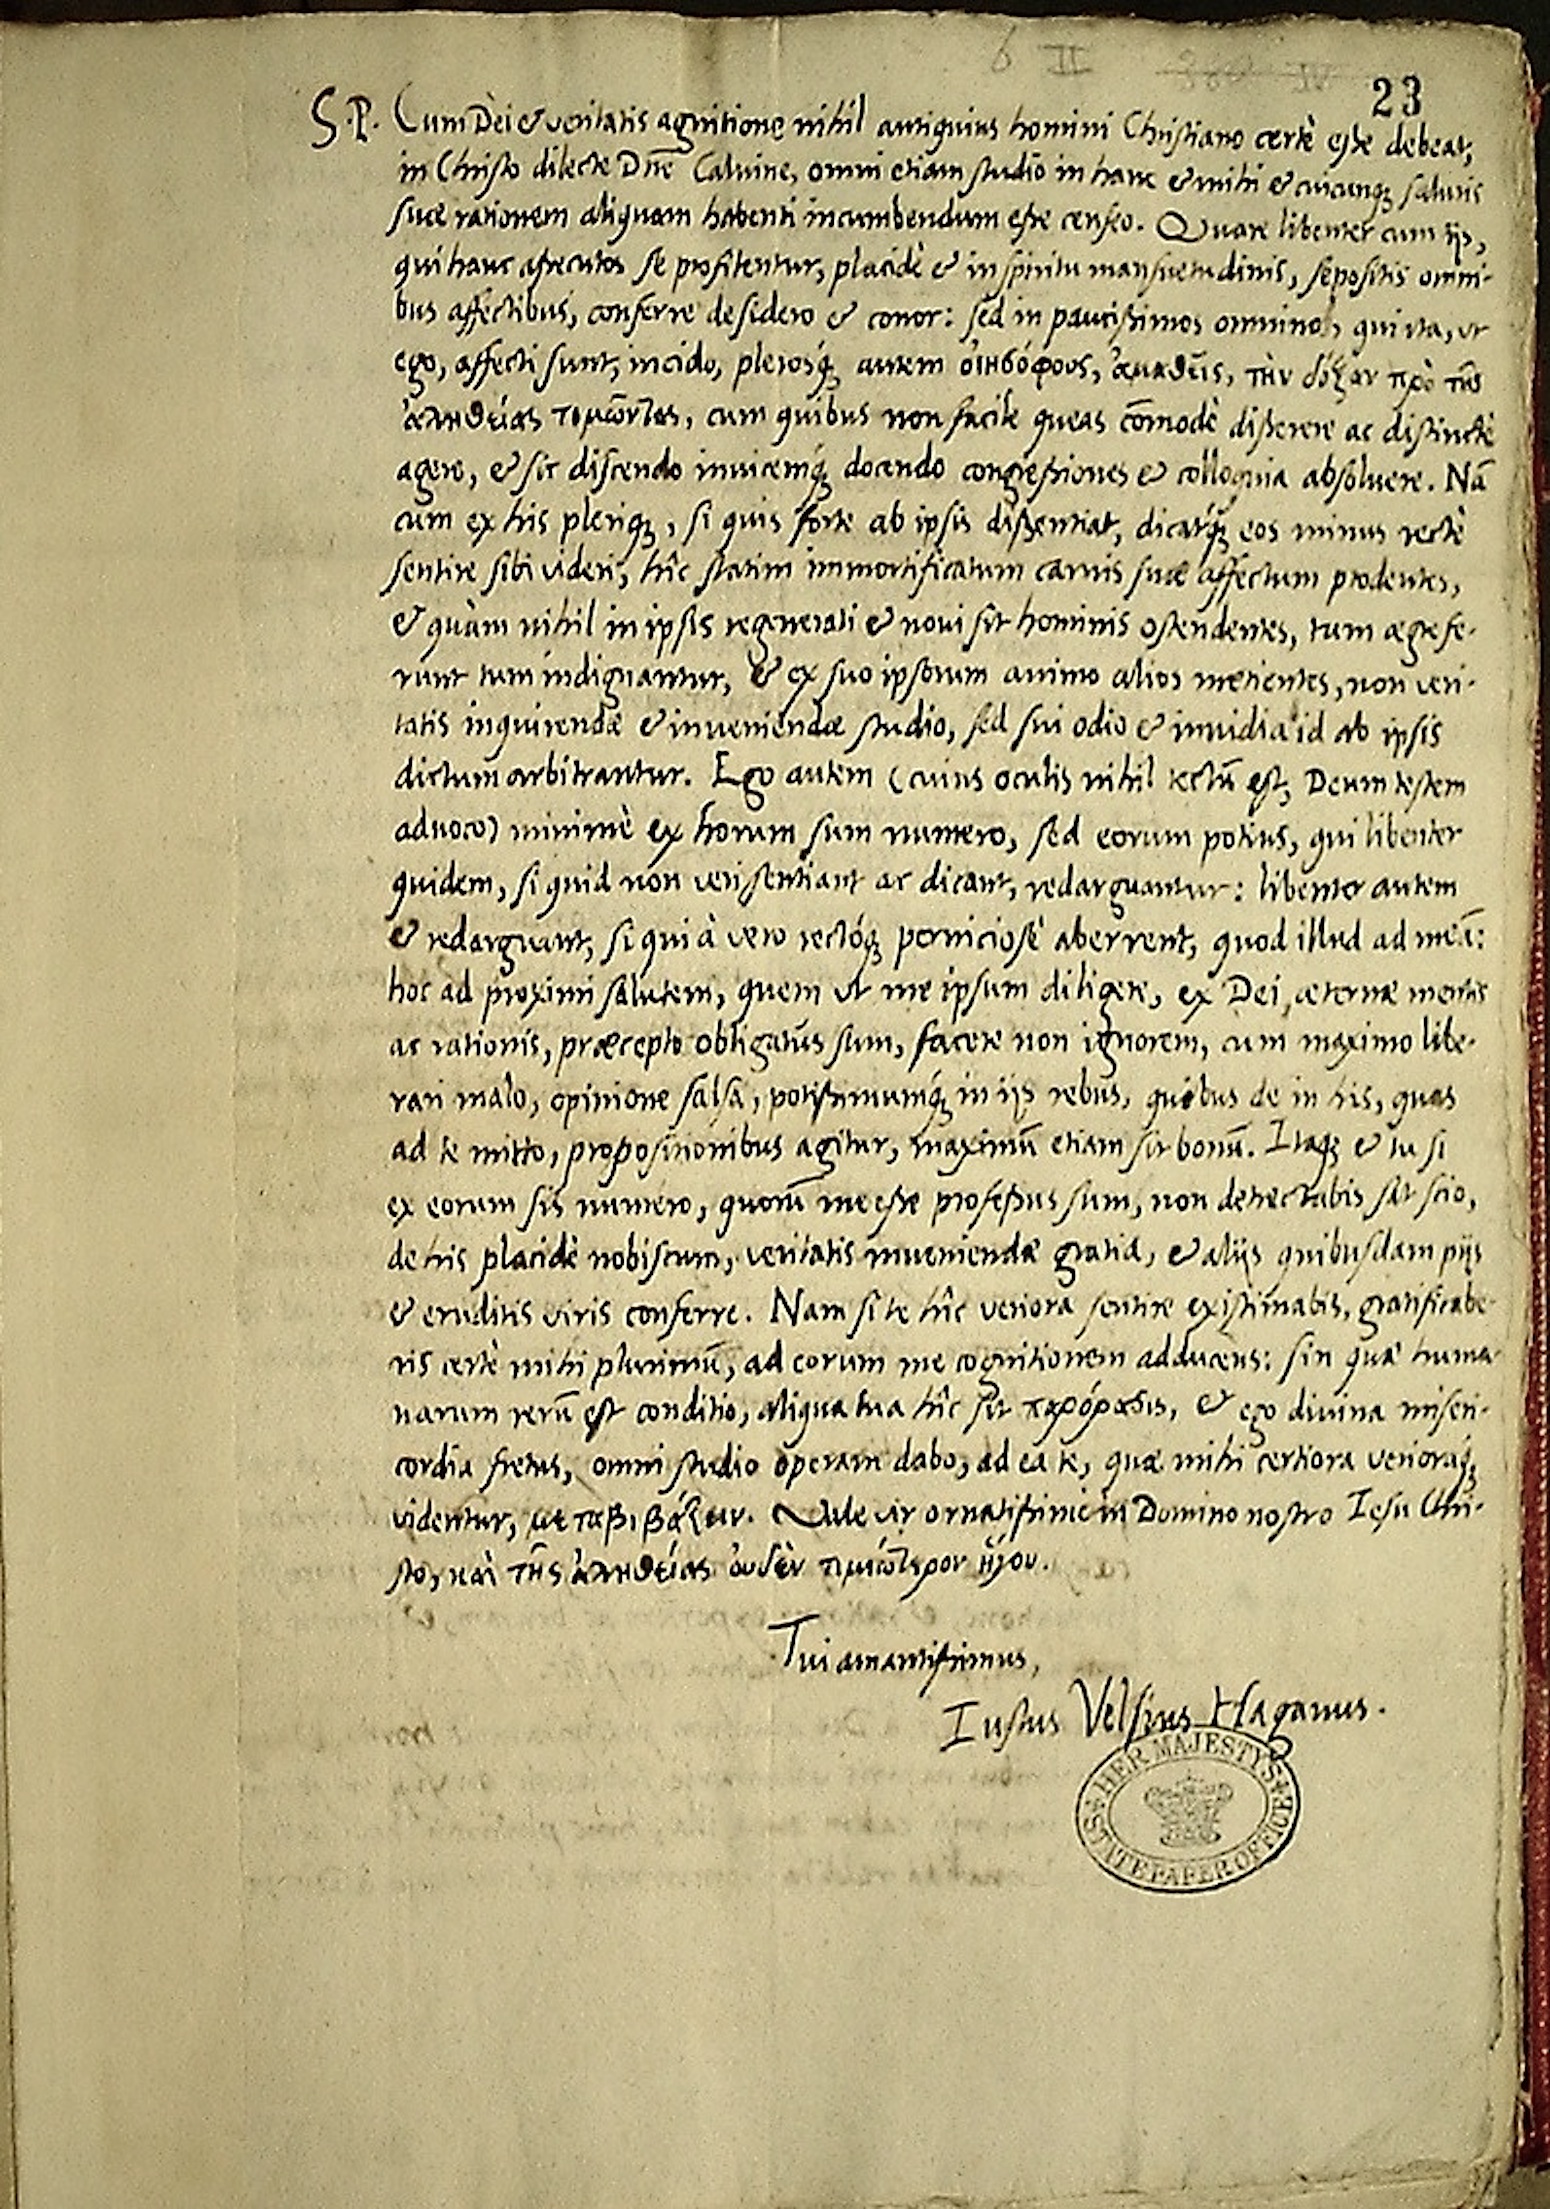 23
S.P. Cum Dei & veritatis agnitione nihil antiquius homini Christiano certè esse debeat,
in Christo dilecte Dñe Calvine, omni etiam studio in hanc & mihi & cuicunq; salutis
suæ rationem aliquam habenti incumbendum esse censeo. Quare libenter cum ijs,
qui hanc assecutos se profitentur, placidè & in spiritu mansuetudinis, sepositis omni-
bus affectibus, conferre desidero & conor: sed in paucissimos omninò, qui ita, ut
ego, affecti sunt, incido, plerosq́; autem οἰησόφους, ἀμαθεῖς, τὴν δόξαν πρὸ τῆς
ἀληθείας τιμῶντας, cum quibus non facile queas cõmodè disserere ac distinctè
agere, & sic discendo invicemq́; docendo congressiones & colloquia absolvere. Nã
cum ex his pleriq;, si quis fortè ab ipsis dissentiat, dicatq́; eos minus rectè
sentire sibi videri, hîc statim immortificatum carnis suæ affectum prodentes,
& quàm nihil in ipsis regenerati & novi sit hominis ostendentes, tum ægre fe-
runt tum indignantur, & ex suo ipsorum animo alios metientes, non veri-
tatis inquirendæ & inveniendæ studio, sed sui odio & invidia id ab ipsis
dictum arbitrantur. Ego autem (cuius oculis nihil tectũ est, Deum testem
advoco) minimè ex horum sum numero, sed eorum potius, qui libenter
quidem, si quid non veri sentiant ac dicant, redarguantur: libenter autem
& redarguant, si qui à vero rectóq; perniciosè aberrent, quod illud ad meã:
hoc ad proximi salutem, quem ut me ipsum diligere, ex Dei, æternæ mentis
ac rationis, præcepto obligatus sum, facere non ignorem, cum maximo libe-
rari malo, opinione falsa, potissimumq́; in ijs rebus, quibus de in his, quas
ad te mitto, propositionibus agitur, maximũ etiam sit bonũ. Itaq; & tu si
ex eorum sis numero, quorũ me esse professus sum, non detrectabis sat scio,
de his placidè nobiscum, veritatis inveniendæ gratia, & alijs quibusdam pijs
& eruditis viris conferre. Nam si te hîc veriora sentire existimabis, gratificabe-
ris certè mihi plurimũ, ad eorum me cognitionem adducens: sin quæ huma-
narum rerũ est conditio, aliqua tua hîc sit παρόρασις, & ego divina miseri-
cordia fretus, omni studio operam dabo, ad ea te, quæ mihi certiora verioraq́;
videntur, μεταβιβάζειν. Vale vir ornatissime in Domino nostro Iesu Chri-
sto, καὶ τῆς ἀληθείας οὐδὲν τιμιώτερον ἡγοῦ.
Tui amantissimus,
Iustus Velsius Haganus.
HER MAJESTY'S
STATE PAPER OFFICE